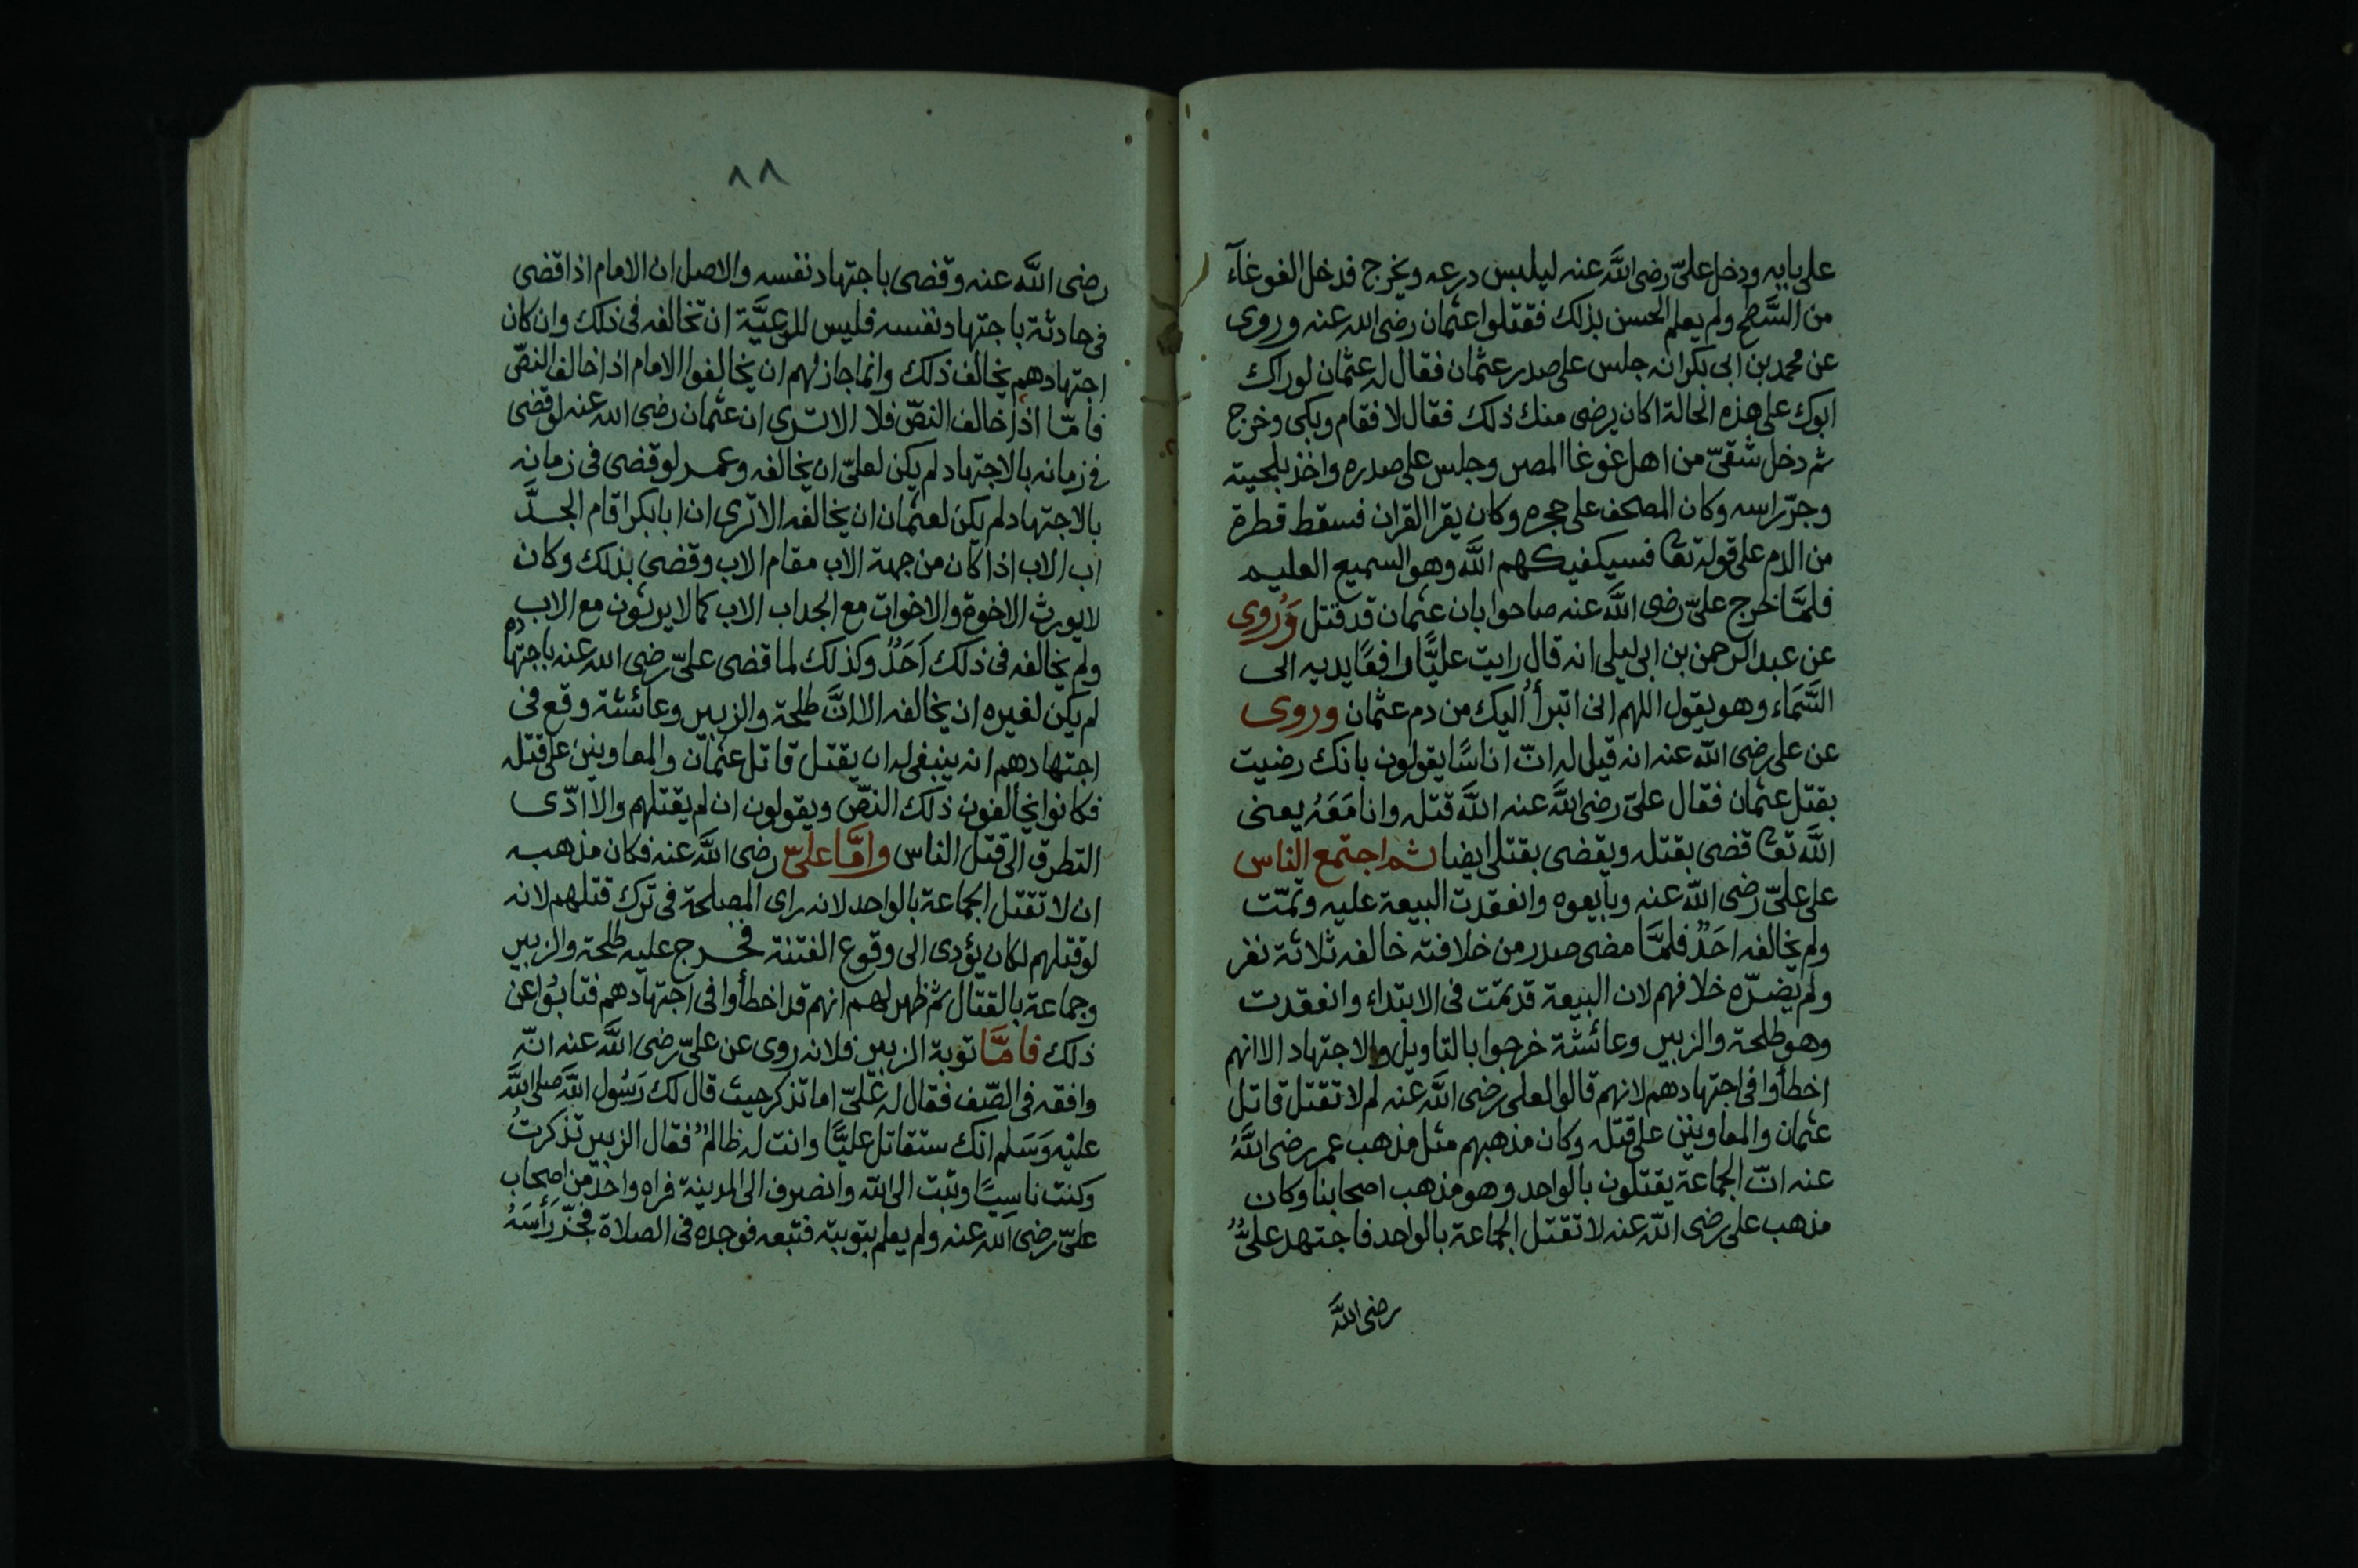 على بابه ودخل علىّ رضى اللَّه عنه ليلبس درعه ويخرج فدخل الغوغآء
من السَّطح ولم يعلم الحسن بذلك فقتلوا عثمان رضى الله عنه وروى
عن محمد بن ابى بكر انه جلس على صدر عثمان فقال له عثمان لوراك
ابوك على هذه الحالة اكان يرضى منك ذلك فقال لا فقام وبكى وخرج
ثم دخل شقىّ من اهل غوغا المصر وجلس على صدره واخذ بلحيته
وجزّ راسه وكان المصحف على حجره وكان يقرا القران فسقط قطرة
من الدم على قوله تعا فسيكفيكهم اللَّه وهو السميع العليم
فلمَّا خرج علىّ رضى اللَّه عنه صاحوا بان عثمان قد قتل وَرُوى
عن عبد الرحمن بن ابى ليلى انه قال رايت عليًّا رافعًا يديه الى
السَّمَاء وهو يقول اللهم انى اتبرأ اليك من دم عثمان وروى
عن على رضى اللّه عنه انه قيل له انّ اناسًا يقولون بانك رضيت
بقتل عثمان فقال علىّ رضى اللَّه عنه اللَّه قتله وانا مَعَهُ يعنى
اللَّه تعا قضى بقتله ويقضى بقتلى ايضا ثم اجتمع الناس
على علىّ رضى اللّه عنه وبايعوه وانعقدت البيعة عليه وتمّت
ولم يخالفه احَدٌ فلمَّا مضى صدر من خلافته خالفه ثلاثة نفر
ولم يضرّه خلافهم لان البيعة قد تمّت فى الابتداء وانعقدت
وهو طلحة والزبير وعائشة خرجوا بالتاويل والاجتهاد الا انهم
اخطأوا فى اجتهادهم لانهم قالوا لعلى رضى اللَّه عنه لم لا تقتل قاتل
عثمان والمعاونين على قتله وكان مذهبهم مثل مذهب عمر رضى اللَّهُ
عنه انّ الجماعة يقتلون بالواحد وهو مذهب اصحابنا وكان
مذهب على رضى اللّه عنه لا تقتل الجماعة بالواحد فاجتهد علىٌّ
رضى اللَّه
٨٨
رضى اللَّه عنه وقضى باجتهاد نفسه والاصل ان الامام اذا قضى
فى حادثة باجتهاد نفسه فليس للرعيَّة ان تخالفه فى ذلك وان كان
اجتهادهم يخالف ذلك وانما جاز لهم ان يخالفوا الامام اذا خالف النصّ
فامّا اذا خالف النصّ فلا الا ترى ان عثمان رضى الله عنه لو قضى
فى زمانه بالاجتهاد لم يكن لعلىّ ان يخالفه وعمر لو قضى فى زمانه
بالاجتهاد لم يكن لعثمان ان يخالفه الا ترى ان ابا بكر اقام الجدَّ
اب الاب اذا كان من جهة الاب مقام الاب وقضى بذلك وكان
لا يورث الاخوة والاخوات مع الجد اب الاب كما لا يرثون مع الاب
ولم يخالفه فى ذلك اَحَدٌ وكذلك لما قضى علىّ رضى الله عنه باجتهاده
لم يكن لغيره ان يخالفه الا انَّ طلحة والزبير وعائشة وقع فى
اجتهادهم انه ينبغى له ان يقتل قاتل عثمان والمعاونين على قتله
فكانوا يخالفون ذلك النصّ ويقولون ان لم يقتلهم والا ادّى
التطرق الى قتل الناس وامَّا علىّ رضى اللَّه عنه فكان مذهبه
ان لا تقتل الجماعة بالواحد لانه راى المصلحة فى ترك قتلهم لانه
لو قتلهم لكان يؤدى الى وقوع الفتنة فخرج عليه طلحة والزبير
وجماعة بالقتال ثم ظهر لهم انهم قد اخطأوا فى اجتهادهم فتابُوا عن
ذلك فامَّا توبة الزبير فلانه روى عن علىّ رضى اللَّه عنه انّه
وافقه فى الصّف فقال له علىّ اما تذكر حيث قال لك رَسُول اللَّه صلى اللَّه
عليْه وَسَلم انك ستقاتل عليًّا وانت له ظالمٌ فقال الزبير تذكرتُ
وكنت ناسِيًا وتبت الى اللّه وانصرف الى المدينة فراه واحدٌ من اصحاب
علىّ رضى اللّه عنه ولم يعلم بتوبته فتبعه فوجده فى الصلاة فجزّ رَأسَهُ